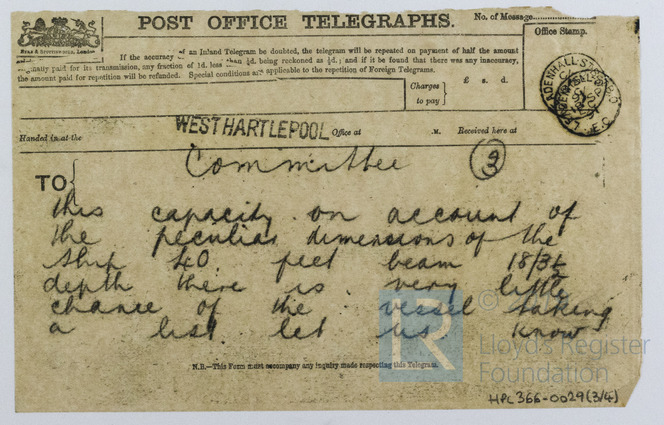 POST OFFICE TELEGRAPHS.
No. of Message
Office Stamp.
If the accuracy of an Inland Telegram be doubted, the telegram will be repeated on payment of half the amount
paid for its transmission, any fraction of 1d. less than ½d. being reckoned as ½d.; and if it be found that there was any inaccuracy,
the amount paid for repetition will be refunded. Special conditions are applicable to the repetition of Foreign Telegrams.
Charges to pay } £ s. d.
Handed in at the WEST HARTLEPOOL Office at .M. Received here at
LEADENHALL STREET B.O
E.C
TO {
Committee (3)
this capacity on account of
the peculiar dimensions of the
ship 40 feet beam 18/3½
depth there is very little
chance of the vessel taking
a list let us know
N.B.—This Form must accompany any inquiry made respecting this Telegram.
©
LR
Lloyd's Register
Foundation
HPL366-0029(3/4)